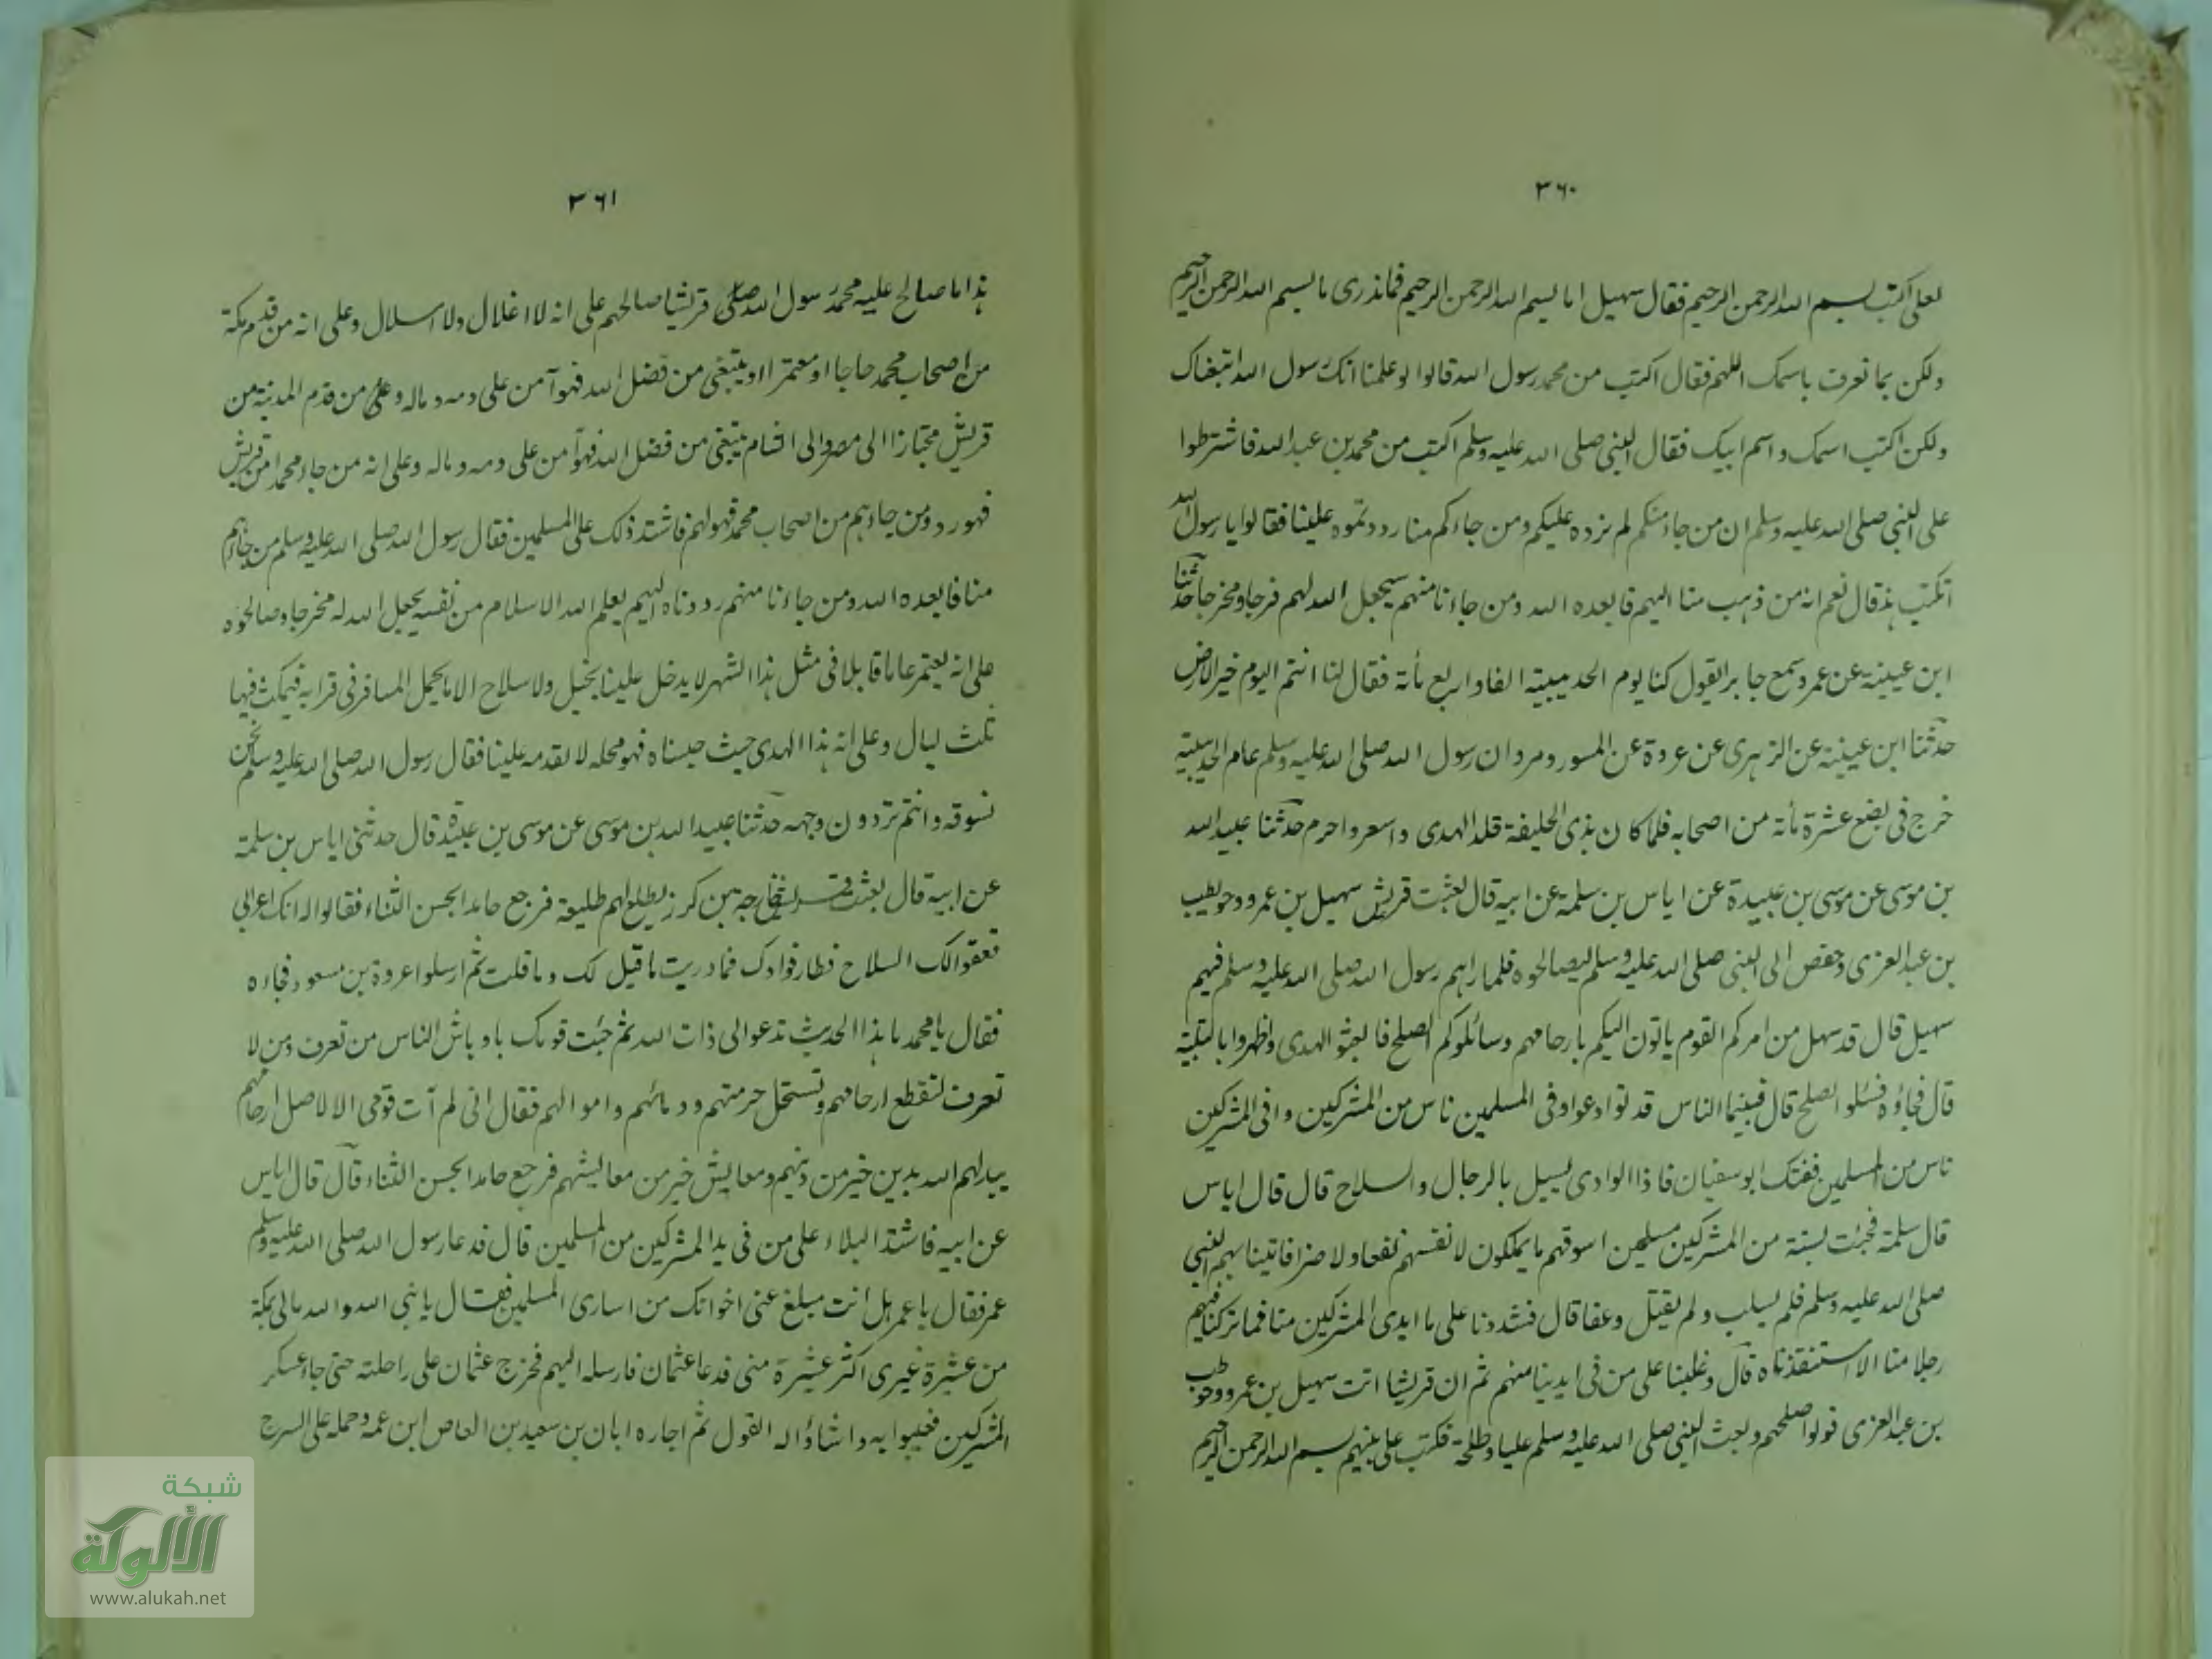 ٣٦٠
لعلى اكتب بسم الله الرحمن الرحيم فقال سهيل اما بسم الله الرحمن الرحيم فما ندرى ما بسم الله الرحمن الرحيم
ولكن بما نعرف باسمك اللهم فقال اكتب من محمد رسول الله قالوا لو علمنا انك رسول الله اتبعناك
ولكن اكتب اسمك واسم ابيك فقال النبى صلى الله عليه وسلم اكتب من محمد بن عبد الله فاشترطوا
على النبى صلى الله عليه وسلم ان من جاء منكم لم نرده عليكم ومن جاءكم منا رددتموه علينا فقالوا يا رسول الله
اتكتب هذا قال نعم انه من ذهب منا اليهم فابعده الله ومن جاءنا منهم سيجعل الله لهم فرجا ومخرجا حدثنا
ابن عيينة عن عمرو سمع جابرا يقول كنا يوم الحديبية الفا واربع مأة فقال لنا انتم اليوم خير الارض
حدثنا ابن عيينة عن الزهرى عن عروة عن المسور ومروان ان رسول الله صلى الله عليه وسلم عام الحديبية
خرج فى بضع عشرة مأة من اصحابه فلما كان بذى الحليفة قلد الهدى واسعر واحرم حدثنا عبيد الله
بن موسى عن موسى بن عبيدة عن اياس بن سلمة عن ابيه قال بعثت قريش سهيل بن عمرو وحويطب
بن عبد العزى وحفص الى النبى صلى الله عليه وسلم ليصالحوه فلما راهم رسول الله صلى الله عليه وسلم فيهم
سهيل قال قد سهل من امركم القوم ياتون اليكم بارحامهم وسائلوكم الصلح فابعثوا الهدى واظهروا بالتلبية
قال فجاؤه فسئلوا الصلح قال فبينما الناس قد توادعوا وفى المسلمين ناس من المشركين وافى المشركين
ناس من المسلمين ففتك ابو سفيان فاذا الوادى يسيل بالرجال والسلاح قال قال اياس
قال سلمة فجئت بستة من المشركين مسلحين اسوقهم ما يملكون لانفسهم نفعا ولا ضرا فاتينا بهم النبى
صلى الله عليه وسلم فلم يسلب ولم يقتل وعفا قال فشددنا على ما ايدى المشركين منا فما تركنا فيهم
رجلا منا الا استنقذناه قال وغلبنا على من فى ايدينا منهم ثم ان قريشا اتت سهيل بن عمرو وحويطب
بن عبد العزى فولوا صلحهم وبعث النبى صلى الله عليه وسلم عليا وطلحة فكتب على بينهم بسم الله الرحمن الرحيم
٣٦١
هذا ما صالح عليه محمد رسول الله صلعم قريشا صالحهم على انه لا اغلال ولا اسلال وعلى انه من قدم مكة
من اصحاب محمد حاجا او معتمرا او يبتغى من فضل الله فهو آمن على دمه وماله وعلى من قدم المدينة من
قريش مجتازا الى مصر والى الشام يبتغى من فضل الله فهو آمن على دمه وماله وعلى انه من جاء محمدا من قريش
فهو رد ومن جاءهم من اصحاب محمد فهو لهم فاشتد ذلك على المسلمين فقال رسول الله صلى الله عليه وسلم من جاءهم
منا فابعده الله ومن جاءنا منهم رددناه اليهم يعلم الله الاسلام من نفسه يجعل الله له مخرجا وصالحوه
على انه يعتمر عاما قابلا فى مثل هذا الشهر لا يدخل علينا بخيل ولا سلاح الا ما يحمل المسافر فى قرابه فيمكث فيها
ثلث ليال وعلى انه هذا الهدى حيث حبسناه فهو محله لا يقدمه علينا فقال رسول الله صلى الله عليه وسلم نحن
نسوقه وانتم تردون وجهه حدثنا عبيد الله بن موسى عن موسى بن عبيدة قال حدثنى اياس بن سلمة
عن ابيه قال بعثت قريش خارجة بن كرز يطلع لهم طليعة فرجع حامدا بحسن الثناء فقالوا له انك اعرابى
قعقعوا لك السلاح فطار فوادك فما دريت ما قيل لك وما قلت ثم ارسلوا عروة بن مسعود فجاءه
فقال يا محمد ما هذا الحديث تدعو الى ذات الله ثم جئت قومك باوباش الناس من تعرف ومن لا
تعرف لتقطع ارحامهم وتستحل حرمتهم ودمائهم واموالهم فقال انى لم آت قومى الا لاصل ارحامهم
يبدلهم الله بدين خير من دينهم ومعايش خير من معايشهم فرجع حامدا بحسن الثناء قال قال اياس
عن ابيه فاشتد البلاء على من فى يد المشركين من المسلمين قال فدعا رسول الله صلى الله عليه وسلم
عمر فقال يا عمر هل انت مبلغ عنى اخوانك من اسارى المسلمين فقال يا نبى الله والله مالى بمكة
من عشيرة غيرى اكثر عشيرة منى فدعا عثمان فارسله اليهم فخرج عثمان على راحلته حتى جاء عسكر
المشركين فعيبوا به واشاؤا له القول ثم اجاره ابان بن سعيد بن العاص ابن عمه وحمله على السرج
شبكة
الألوكة
www.alukah.net